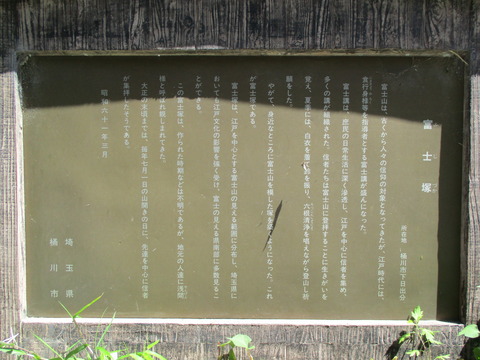 富士塚
所在地 桶川市下日出谷
富士山は、古くから人々の信仰の対象となってきたが、江戸時代には、
食行身禄等を指導者とする富士講が盛んになった。
富士講は、庶民の日常生活に深く浸透し、江戸を中心に信者を集め、
多くの講が結縁された。信者たちは富士山に登拝することに生きがいを
覚え、夏季には、白衣を着て鈴を振り、六根清浄を唱えながら登山し祈
願をした。
やがて、身近なところに富士山を模した塚を造るようになった。これ
が富士塚である。
富士塚は、江戸を中心とする富士山の見える範囲に分布し、埼玉県に
おいても江戸文化の影響を強く受け、富士の見える県南部に多数見るこ
とができる。
この富士塚は、作られた時期などは不明であるが、地元の人達に浅間
様と呼ばれ親しまれてきた。
大正の末頃までは、毎年七月一日の山開きの日に、先達を中心に信者
が集拝したそうである。
昭和六十一年三月
埼玉県
桶川市